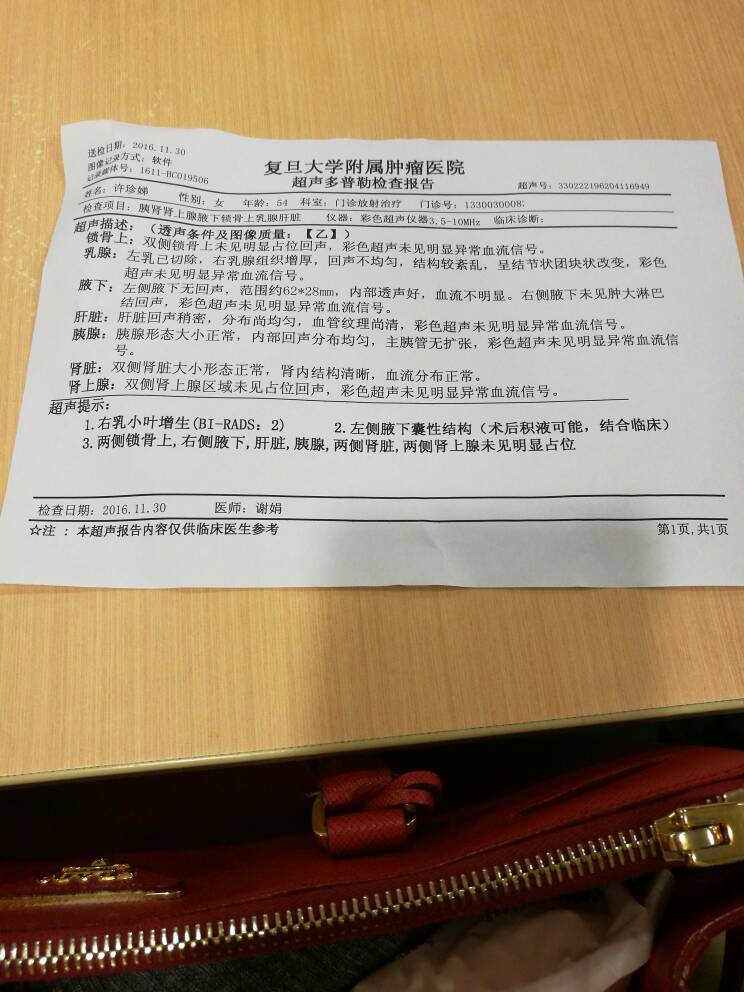 送检日期: 2016.11.30
图像记录方式: 软件
记录媒体号: 1611-BC019506
复旦大学附属肿瘤医院
超声多普勒检查报告
超声号: 330222196204116949
姓名: 许珍娣 性别: 女 年龄: 54 科室: 门诊放射治疗 门诊号: 1330030008:
检查项目: 胰肾肾上腺腋下锁骨上乳腺肝脏 仪器: 彩色超声仪器3.5-10MHz 临床诊断:
超声描述: (透声条件及图像质量: 【乙】)
锁骨上: 双侧锁骨上未见明显占位回声, 彩色超声未见明显异常血流信号。
乳腺: 左乳已切除, 右乳腺组织增厚, 回声不均匀, 结构较紊乱, 呈结节状团块状改变, 彩色
超声未见明显异常血流信号。
腋下: 左侧腋下无回声, 范围约62*28mm, 内部透声好, 血流不明显。右侧腋下未见肿大淋巴
结回声, 彩色超声未见明显异常血流信号。
肝脏: 肝脏回声稍密, 分布尚均匀, 血管纹理尚清, 彩色超声未见明显异常血流信号。
胰腺: 胰腺形态大小正常, 内部回声分布均匀, 主胰管无扩张, 彩色超声未见明显异常血流信
号。
肾脏: 双侧肾脏大小形态正常, 肾内结构清晰, 血流分布正常。
肾上腺: 双侧肾上腺区域未见占位回声, 彩色超声未见明显异常血流信号。
超声提示:
1.右乳小叶增生(BI-RADS: 2) 2.左侧腋下囊性结构 (术后积液可能, 结合临床)
3.两侧锁骨上,右侧腋下,肝脏,胰腺,两侧肾脏,两侧肾上腺未见明显占位
检查日期: 2016.11.30 医师: 谢娟
☆注 : 本超声报告内容仅供临床医生参考 第1页,共1页